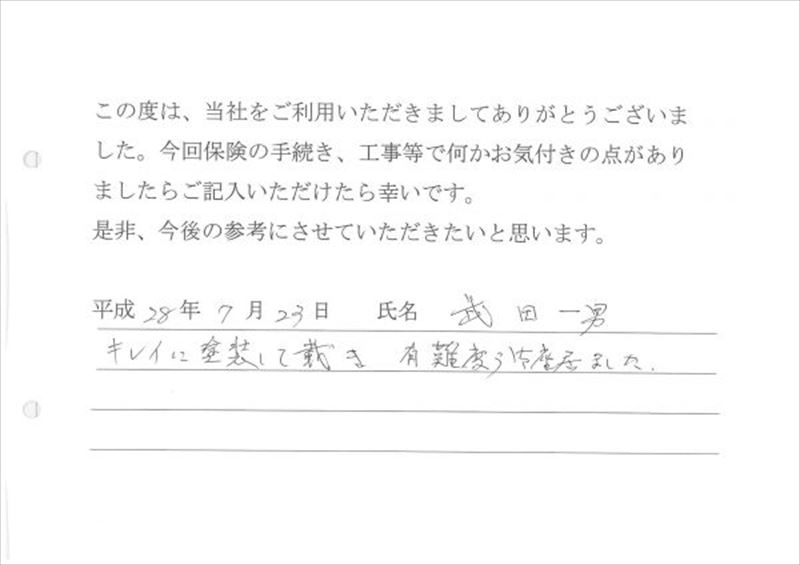 この度は、当社をご利用いただきましてありがとうございま
した。今回保険の手続き、工事等で何かお気付きの点があり
ましたらご記入いただけたら幸いです。
是非、今後の参考にさせていただきたいと思います。
平成 28年 7月 23日 氏名 武田一男
キレイに塗装して戴き 有難度う御座居ました.